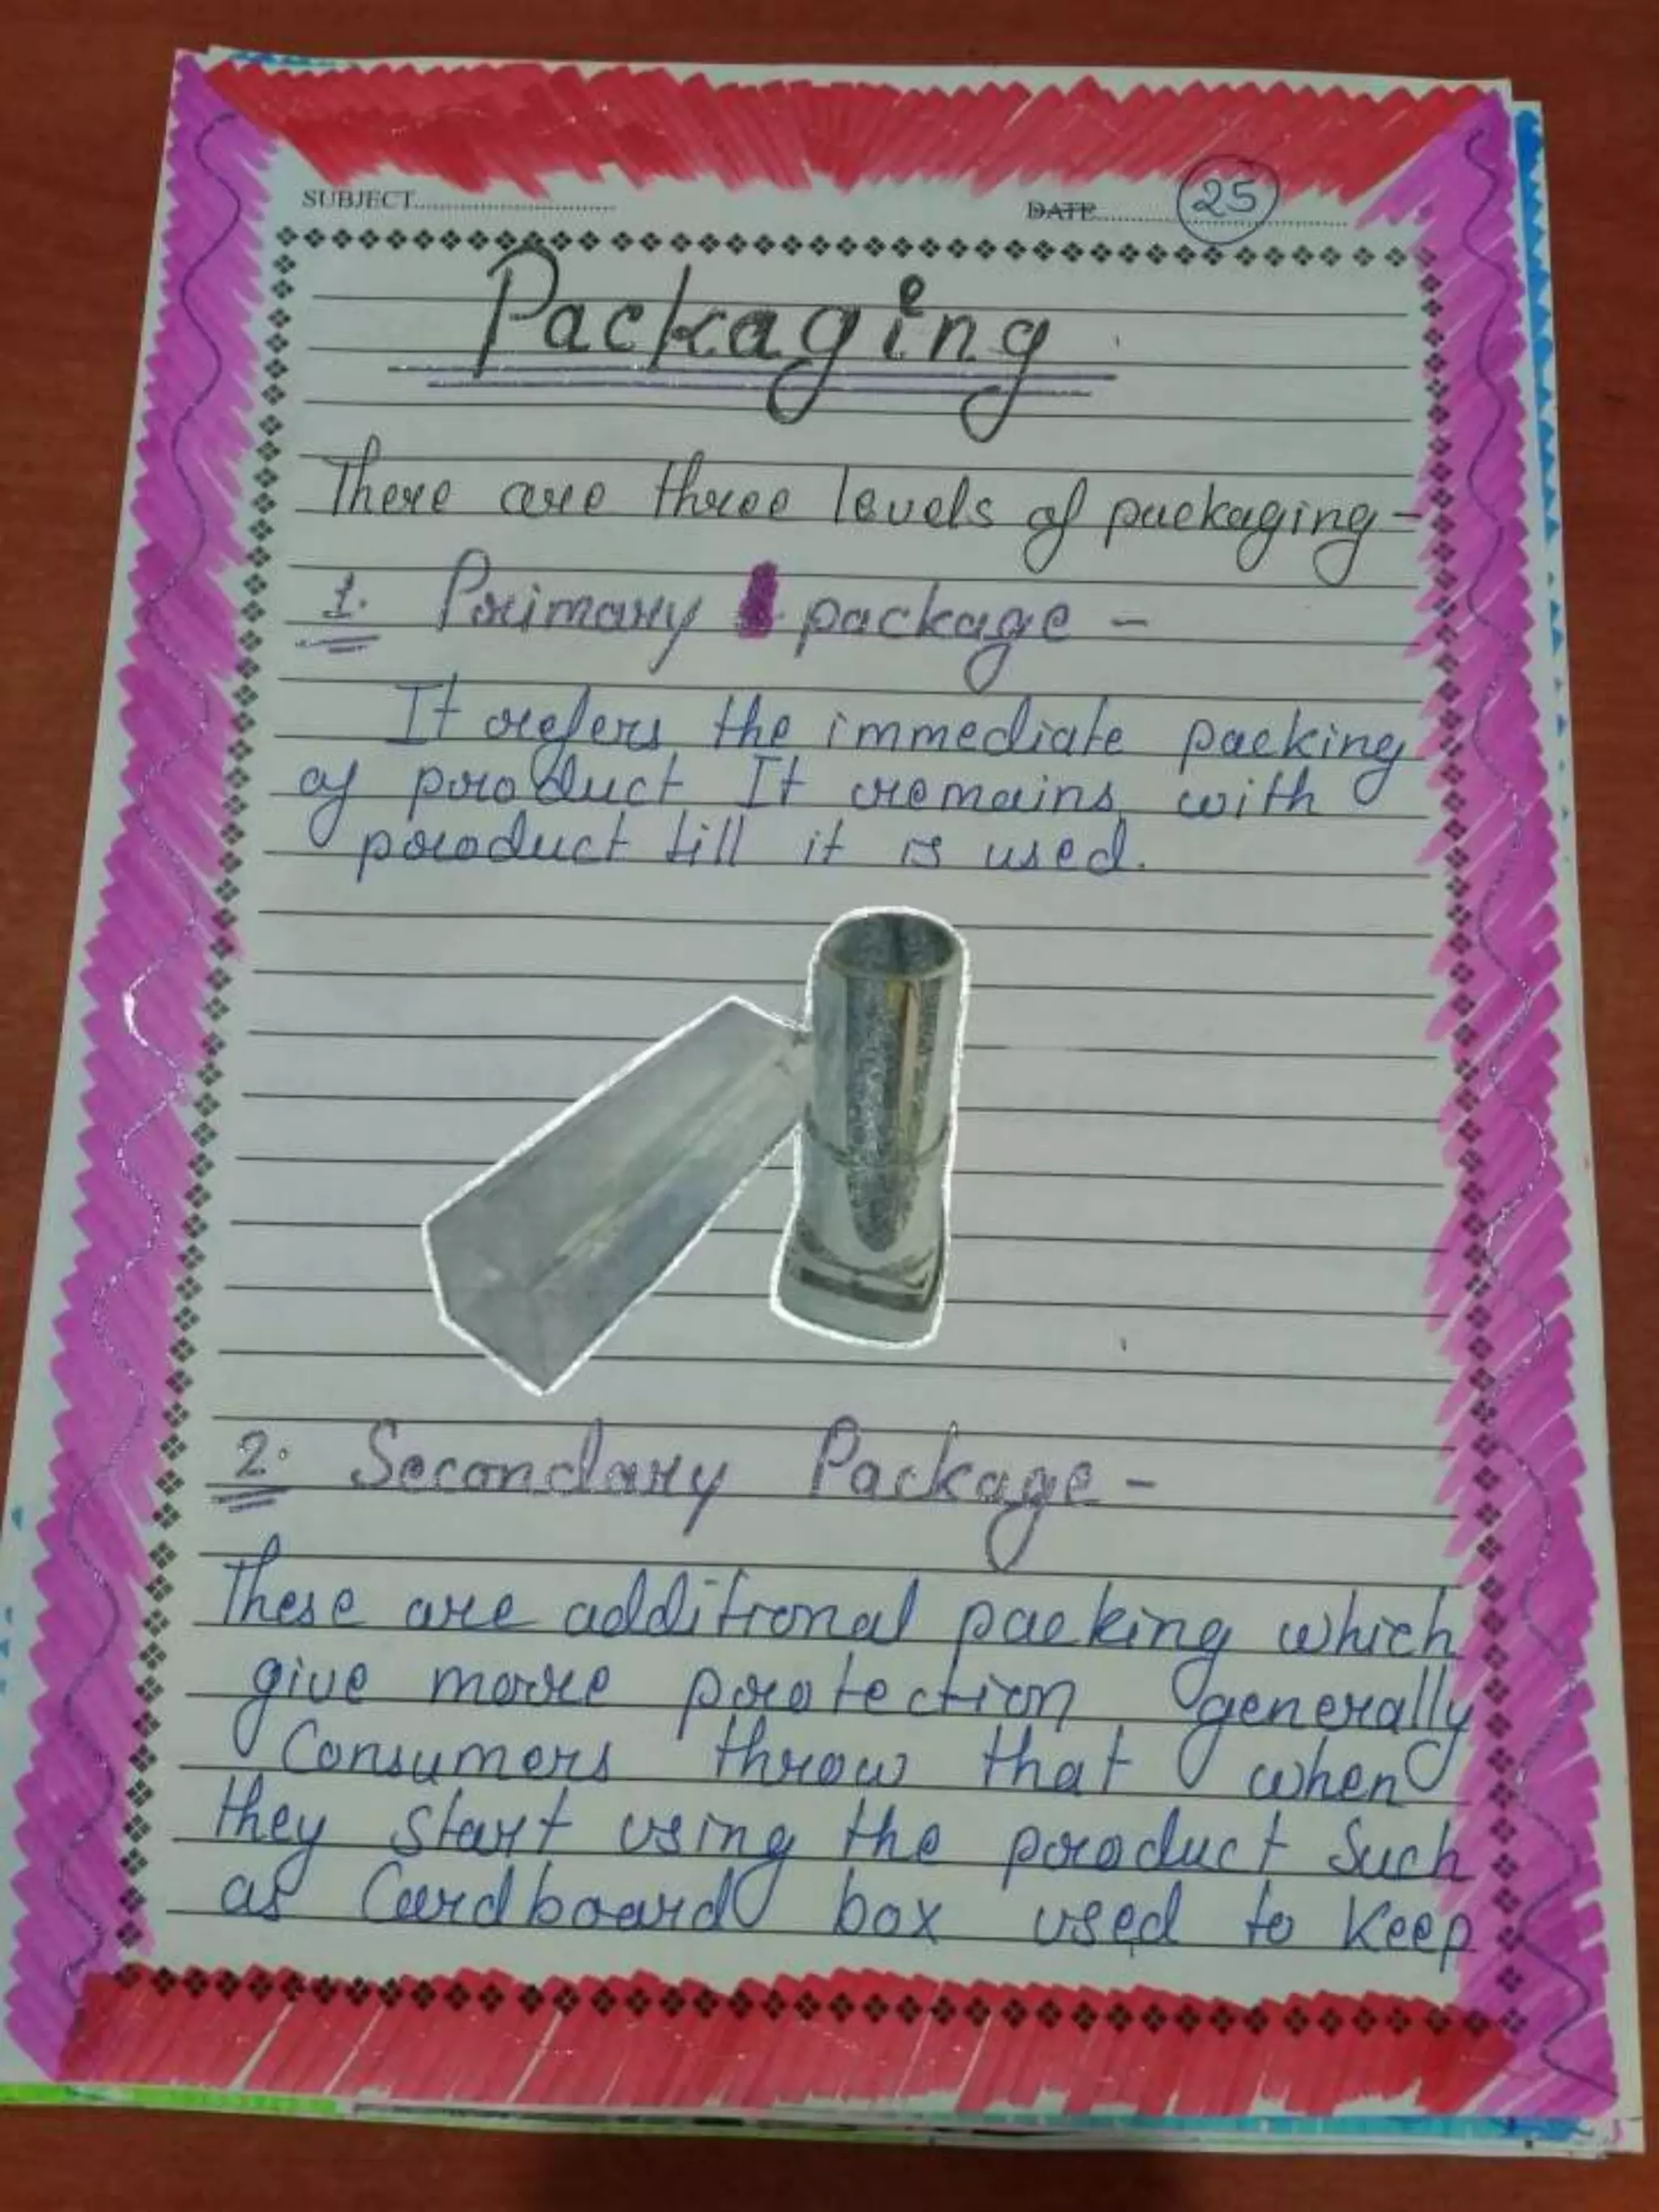 SUBJECT
DATE 25
Packaging
There are three levels of packaging -
1. Primary package -
It refers the immediate packing
of product It remains with
product till it is used.
2. Secondary Package -
These are additional packing which
give more protection generally
Consumers throw that when
they start using the product Such
as Cardboard box used to keep